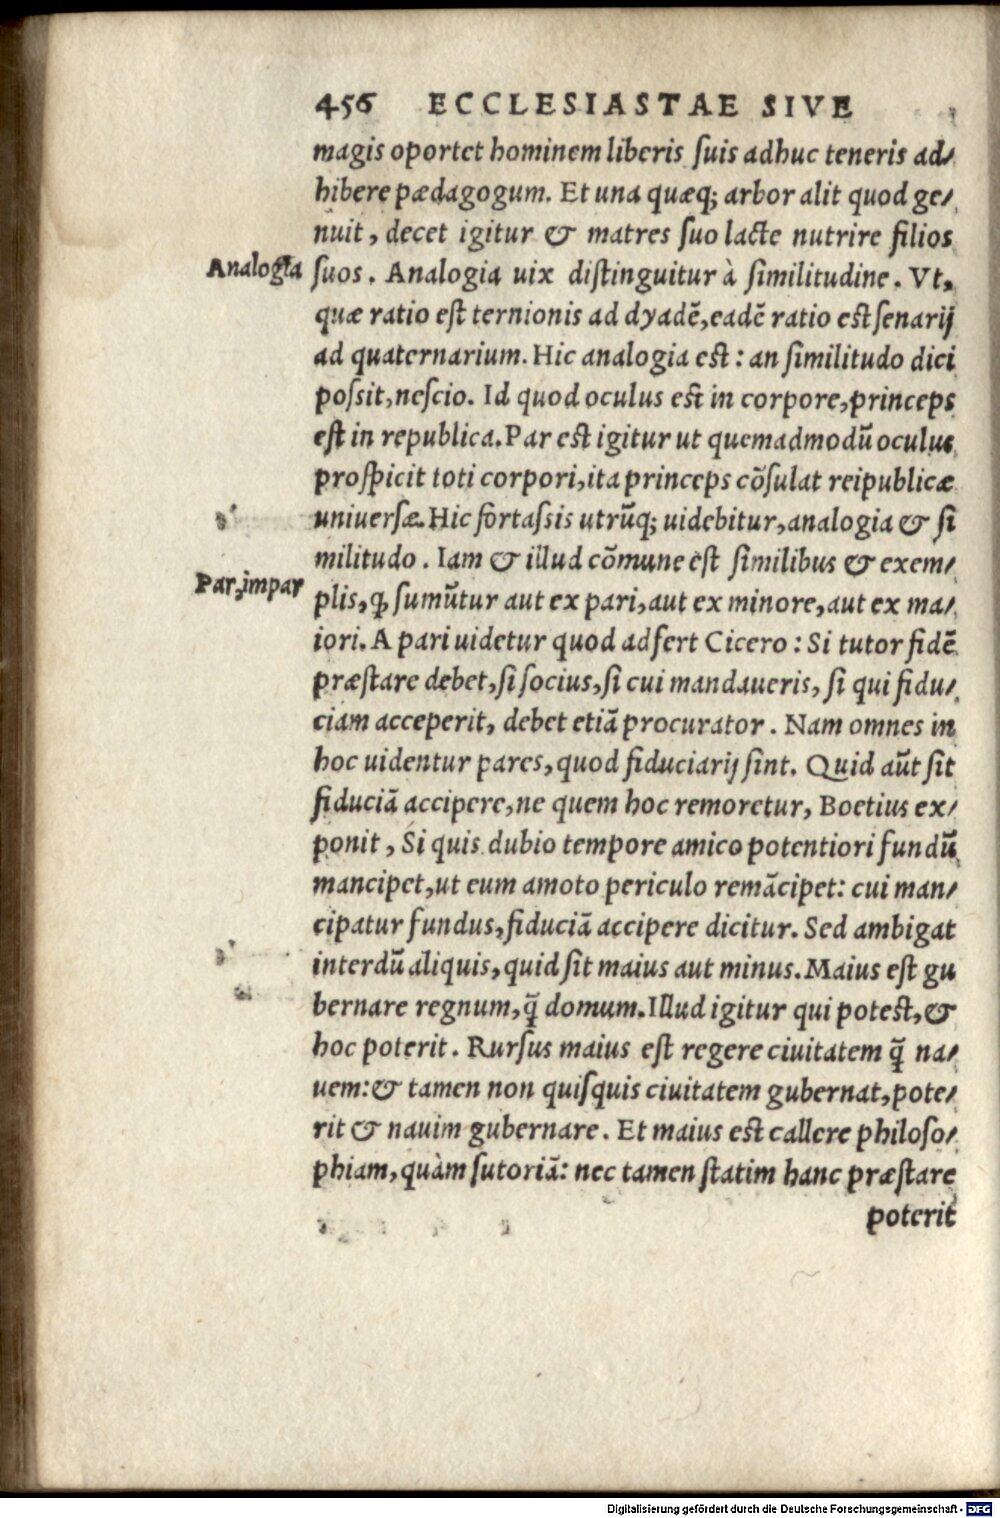 456 ECCLESIASTAE SIVE
magis oportet hominem liberis suis adhuc teneris ad/
hibere pædagogum. Et una quæq; arbor alit quod ge/
nuit, decet igitur & matres suo lacte nutrire filios
Analogia
suos. Analogia uix distinguitur à similitudine. Vt,
quæ ratio est ternionis ad dyadē, eadē ratio est senarij
ad quaternarium. Hic analogia est: an similitudo dici
possit, nescio. Id quod oculus est in corpore, princeps
est in republica. Par est igitur ut quemadmodū oculus
prospicit toti corpori, ita princeps cōsulat reipublicæ
uniuersæ. Hic fortassis utrūq; uidebitur, analogia & si
militudo. Iam & illud cōmune est similibus & exem/
Par, impar
plis, ꝙ sumūtur aut ex pari, aut ex minore, aut ex ma/
iori. A pari uidetur quod adfert Cicero: Si tutor fidē
præstare debet, si socius, si cui mandaueris, si qui fidu/
ciam acceperit, debet etiā procurator. Nam omnes in
hoc uidentur pares, quod fiduciarij sint. Quid aūt sit
fiduciā accipere, ne quem hoc remoretur, Boetius ex/
ponit, Si quis dubio tempore amico potentiori fundū
mancipet, ut eum amoto periculo remācipet: cui man/
cipatur fundus, fiduciā accipere dicitur. Sed ambigat
interdū aliquis, quid sit maius aut minus. Maius est gu
bernare regnum, q̄ domum. Illud igitur qui potest, &
hoc poterit. Rursus maius est regere ciuitatem q̄ na/
uem: & tamen non quisquis ciuitatem gubernat, pote/
rit & nauim gubernare. Et maius est callere philoso/
phiam, quàm sutoriā: nec tamen statim hanc præstare
poterit
Digitalisierung gefördert durch die Deutsche Forschungsgemeinschaft - DFG